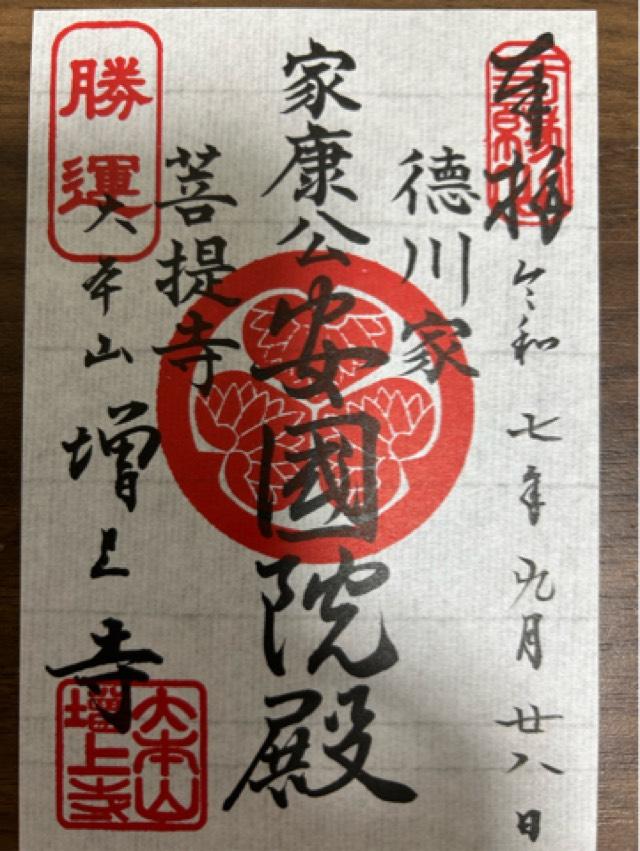 奉拝
令和七年九月廿八日
徳川家
家康公
安國院殿
菩提寺
勝運
大本山増上寺
大本山
増上寺